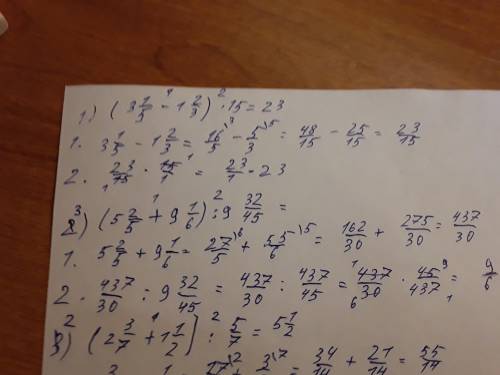 1) (3 1/5 - 1 2/3) · 15 = 23
1. 3 1/5 - 1 2/3 = 16/5 - 5/3 = 48/15 - 25/15 = 23/15
2. 23/15 · 15/1 = 23/1 = 23
3) (5 2/5 + 9 1/6) : 9 32/45 =
1. 5 2/5 + 9 1/6 = 27/5 + 55/6 = 162/30 + 275/30 = 437/30
2. 437/30 : 9 32/45 = 437/30 : 437/45 = 437/30 · 45/437 = 9/6
(2 3/7 + 1 1/2) : 5/7 = 5 1/2
= 34/14 + 21/14 = 55/14